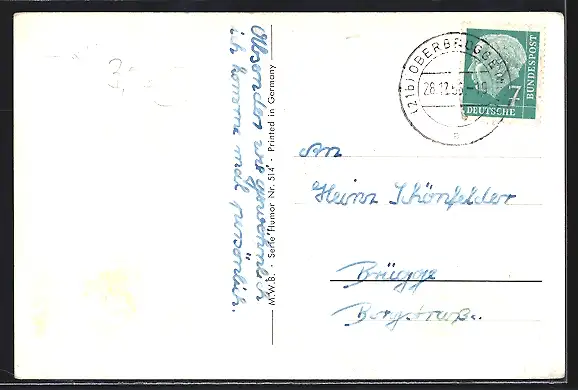 3,-
Absender wie gewöhnlich
ich komme mal persönlich.
M.W.B. · Serie "Humor Nr. 514" · Printed in Germany
(21b) OBERBRÜGGE
28.12.56
a
7
DEUTSCHE
BUNDESPOST
An
Heinz Schönfelder
Brügge
Bergstraße.